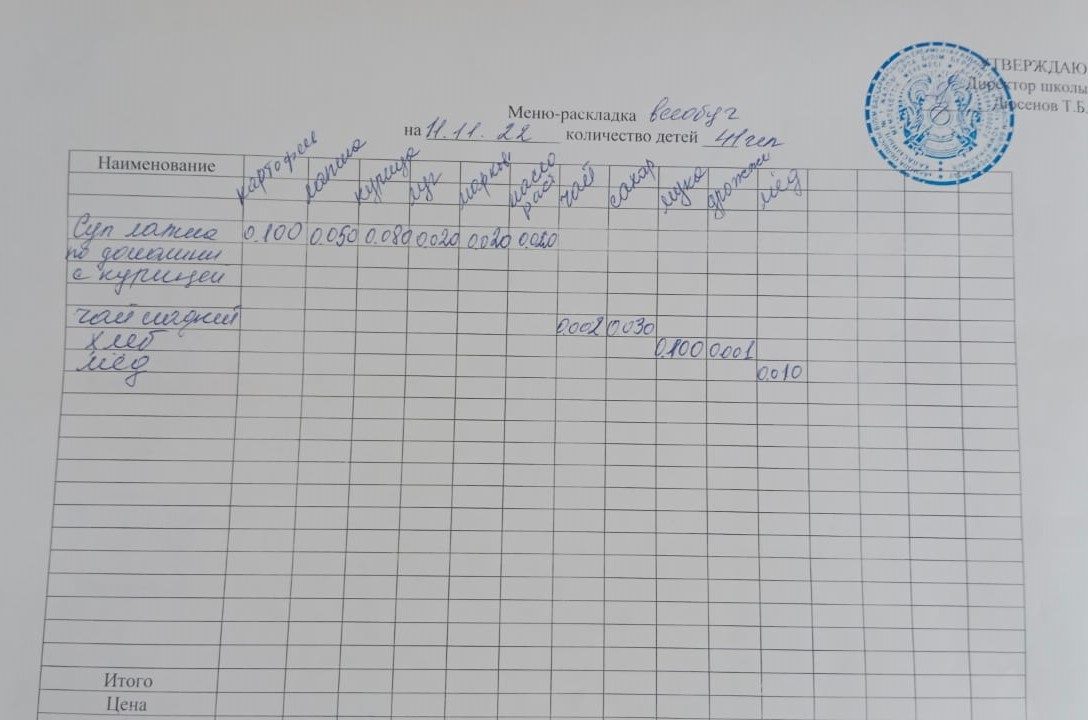 УТВЕРЖДАЮ
Директор школы
Дюсенов Т.Б.
Меню-раскладка всеобуч
на 11.11.22 количество детей 41чел
Наименование картофель лапша курица лук морковь масло раст чай сахар мука дрожжи мёд
Суп лапша 0.100 0.050 0.080 0.020 0.020 0.020
по домашни
с курицей
чай сладкий 0.002 0.030
хлеб 0.100 0.001
мёд 0.010
Итого
Цена